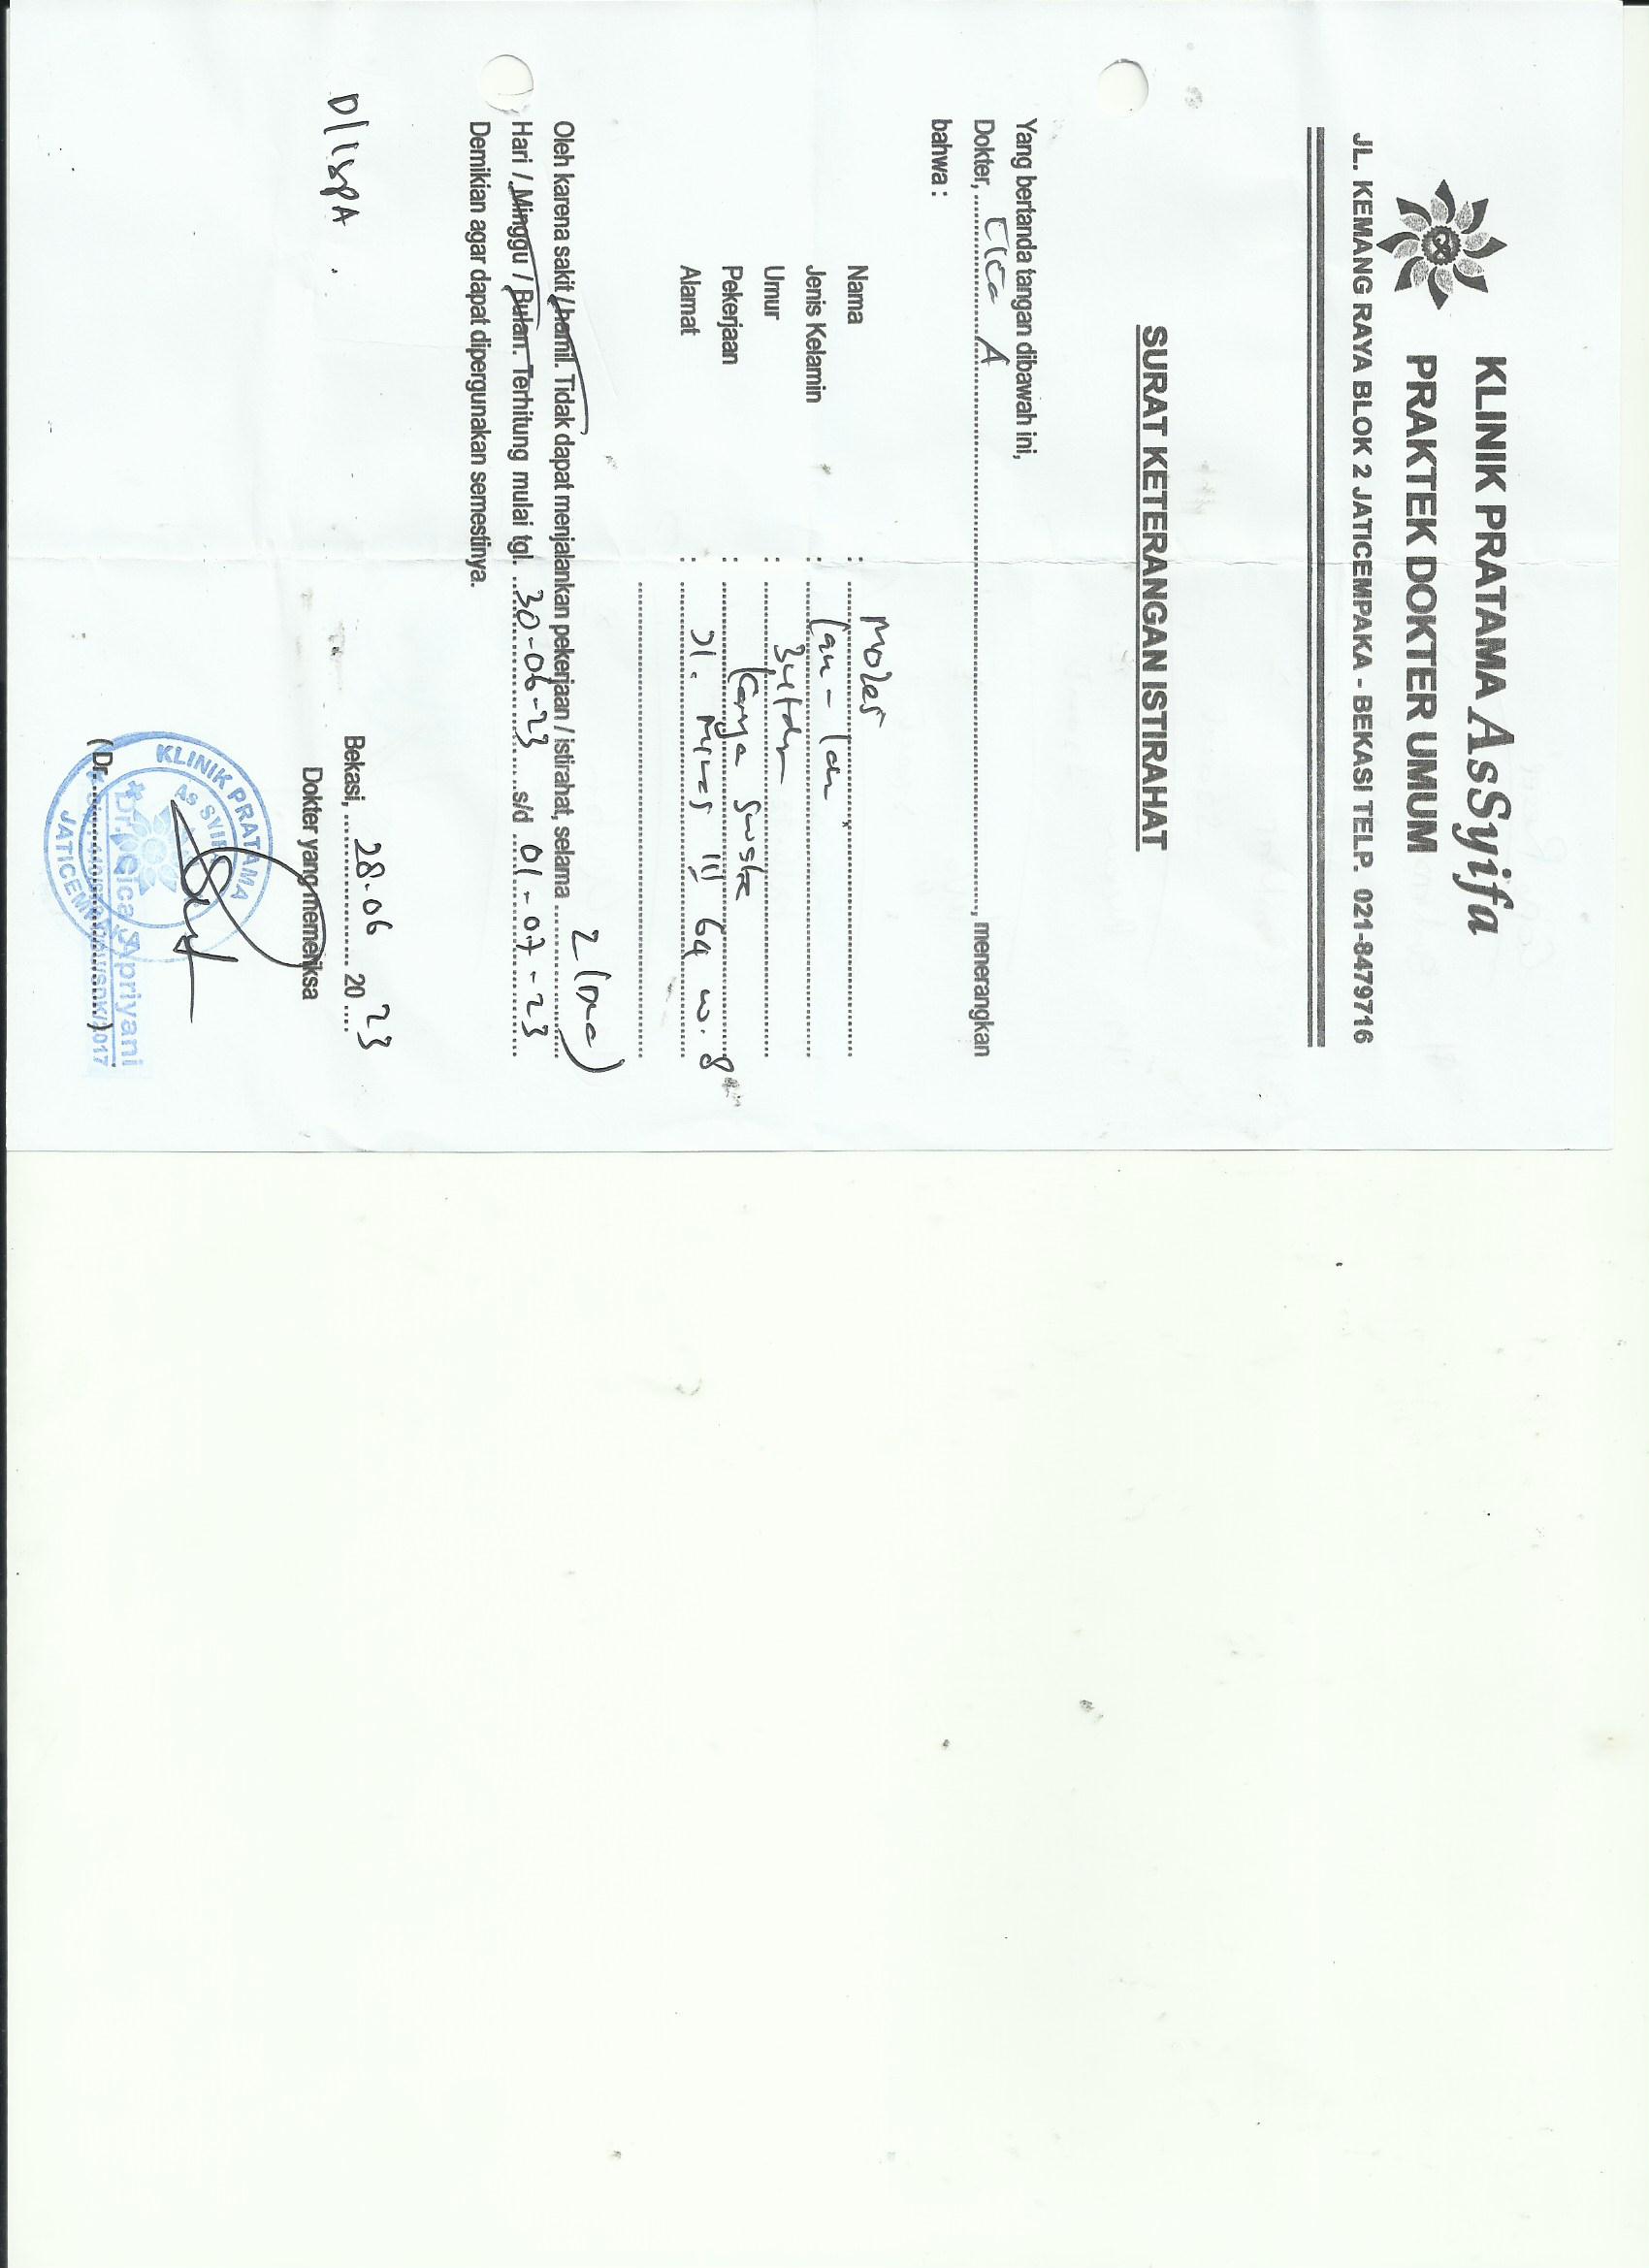 KLINIK PRATAMA AsSyifa
PRAKTEK DOKTER UMUM
JL. KEMANG RAYA BLOK 2 JATICEMPAKA - BEKASI TELP. 021-8479716
SURAT KETERANGAN ISTIRAHAT
Yang bertanda tangan dibawah ini,
Dokter, Elca A, menerangkan
bahwa :
Nama : Moses
Jenis Kelamin : Laki - laki
Umur : 34 thn
Pekerjaan : Karya Swasta
Alamat : Jl. 64 8
Oleh karena sakit / hamil. Tidak dapat menjalankan pekerjaan / istirahat, selama 2 (Dua)
Hari / Minggu / Bulan. Terhitung mulai tgl. 30-06-23 s/d 01-07-23
Demikian agar dapat dipergunakan semestinya.
D/ ISPA.
Bekasi, 28.06 2023
Dokter yang memeriksa
KLINIK PRATAMA
AS SYIFA
JATICEMPAKA
Dr. Elca Apriyani
(Dr. )